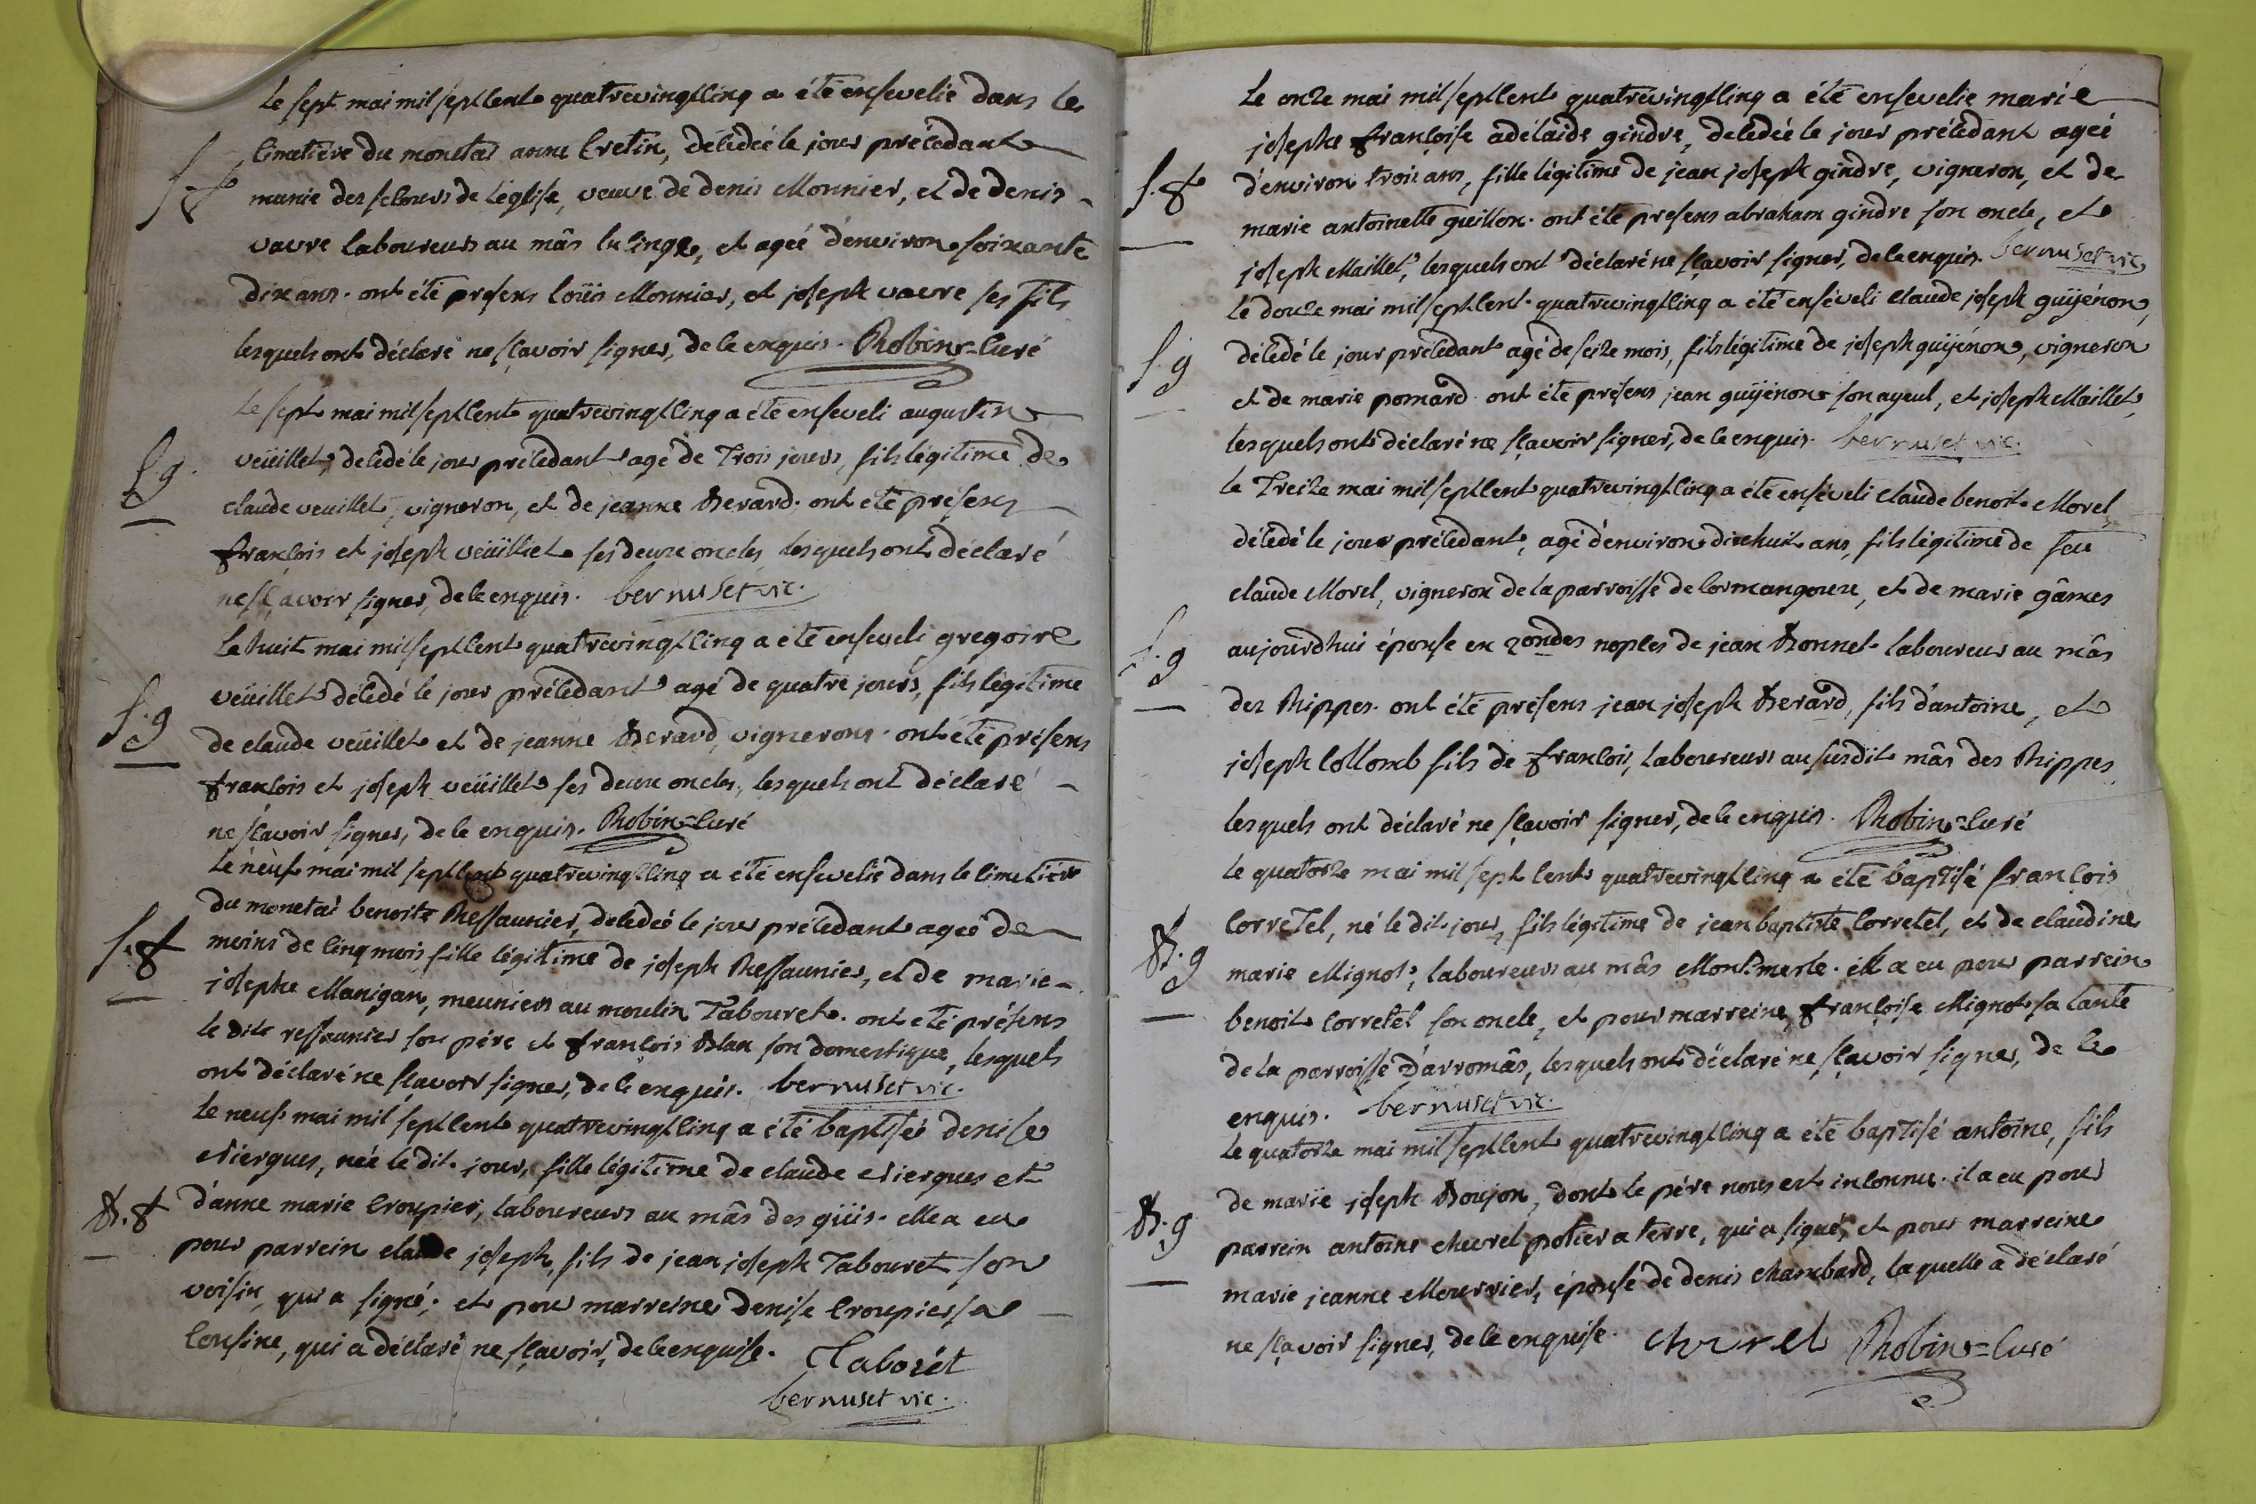 Le sept mai mil sept cent quatre vingt cinq a été ensevelie dans le
S. f
cimetiere du monetai anne Cretin, décédée le jour précédant
munie des secours de l'église, veuve de denis Monnier, et de denis
vavre laboureurs au mâs lulinge, et agée d'environ soixante
dix ans. ont été présens loüis Monnier, et joseph vavre ses fils
lesquels ont déclaré ne sçavoir signer, de ce enquis. Robin curé
Le sept mai mil sept cent quatre vingt cinq a été enseveli augustin
S. g.
veüillet, décédé le jour précédant agé de trois jours, fils légitime de
claude veuillet, vigneron, et de jeanne Berard. ont été présens
françois et joseph veüillet ses deux oncles, lesquels ont déclaré
ne sçavoir signer, de ce enquis. bernuset vic.
Le huit mai mil sept cent quatre vingt cinq a été enseveli gregoire
S. g
veüillet décédé le jour précédant agé de quatre jours, fils légitime
de claude veüillet et de jeanne Berard, vignerons. ont été présens
françois et joseph veüillet ses deux oncles, lesquels ont déclaré
ne sçavoir signer, de ce enquis. Robin curé
Le neuf mai mil sept cent quatre vingt cinq a été ensevelie dans le cimetière
du monetai benoite Ressaunier, décédée le jour précédant agée de
S. f
moins de cinq mois fille légitime de joseph Ressaunier, et de marie
josephe Manigan, meuniers au moulin Tabouret. ont été présens
le dit ressaunier son père et françois Blan son domestique, lesquels
ont déclaré ne sçavoir signer, de ce enquis. bernuset vic.
Le neuf mai mil sept cent quatre vingt cinq a été baptisée denise
Niergues, née le dit jour, fille légitime de claude Niergues et
B. f
d'anne marie Croupier, laboureurs au mâs des güis. elle a eu
pour parrein claude joseph, fils de jean joseph Tabouret son
voisin, qui a signé; et pour marreine denise Croupier sa
cousine, qui a déclaré ne sçavoir, de ce enquise. Taborét
bernuset vic.
Le onze mai mil sept cent quatre vingt cinq a été ensevelie marie
josephe françoise adélaide gindre, décédée le jour précédant agée
S. f
d'environ trois ans, fille légitime de jean joseph gindre, vigneron, et de
marie antoinette guillon. ont été presens abraham gindre son oncle, et
joseph Maillet, lesquels ont déclaré ne sçavoir signer, de ce enquis. bernuset vic
Le douze mai mil sept cent quatre vingt cinq a été enséveli claude joseph guÿénon,
S. g
décédé le jour précédant agé de seize mois, fils légitime de joseph guÿénon, vigneron
et de marie pomard. ont été présens jean guÿénon son ayeul, et joseph Maillet,
lesquels ont déclaré ne sçavoir signer, de ce enquis. bernuset vic.
Le treize mai mil sept cent quatre vingt cinq a été enséveli claude benoit Morel
décédé le jour précédant, agé d'environ dixhuit ans, fils légitime de feu
claude Morel, vigneron de la parroisse de Cormangoux, et de marie gâmes
S. g
aujourdhui épouse en 2ondes noples de jean Bonnet laboureur au mâs
des Rippes. ont été présens jean joseph Berard, fils d'antoine, et
joseph Collomb fils de françois, laboureurs au susdit mâs des Rippes
lesquels ont déclaré ne sçavoir signer, de ce enquis. Robin curé
Le quatorze mai mil sept cent quatre vingt cinq a été baptisé françois
Corretel, né le dit jour, fils légitime de jean baptiste Corretel, et de claudine
B. g
marie Mignot, laboureurs au mâs Montmerle. il a eu pour parrein
benoit Corretel son oncle, et pour marreine françoise Mignot sa tante
de la parroisse d'arromâs, lesquels ont déclaré ne sçavoir signer, de ce
enquis. bernuset vic.
Le quatorze mai mil sept cent quatre vingt cinq a été baptisé antoine, fils
de marie joseph Boujon, dont le père nous est inconnu. il a eu pour
B. g
parrein antoine chevrel potier a terre, qui a signé; et pour marreine
marie jeanne Mourrier, épouse de denis chambard, laquelle a déclaré
ne sçavoir signer, de ce enquise. Robin curé